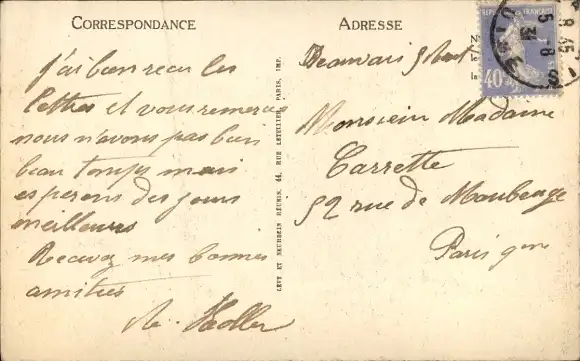 CORRESPONDANCE
j'ai bien recu les
lettres et vous remercie
nous n'avons pas bien
beau temps mais
esperons des jours
meilleurs
Recevez mes bonnes
amitiés
LEVY ET NEURDEIN RÉUNIS, 44, RUE LETELLIER, PARIS, IMP.
ADRESSE
Beauvais 5 Aout
Monsieur Madame
Carrette
52 rue de Maubeuge
Paris 9me
40